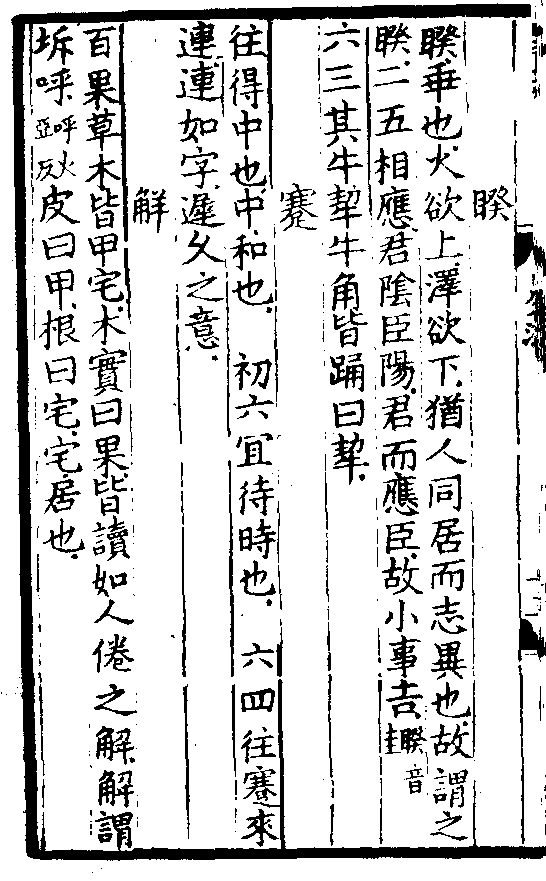 睽
睽垂也火欲上澤欲下猶人同居而志異也故謂之
睽二五相應君陰臣陽君而應臣故小事吉睽音圭
六三其牛挈牛角皆踊曰挈
蹇
往得中也中和也　初六宜待時也　六四往蹇來
連連如字遲久之意
解
百果草木皆甲宅木實曰果皆讀如人倦之解解謂
坼呼呼火亞反皮曰甲根曰宅宅居也